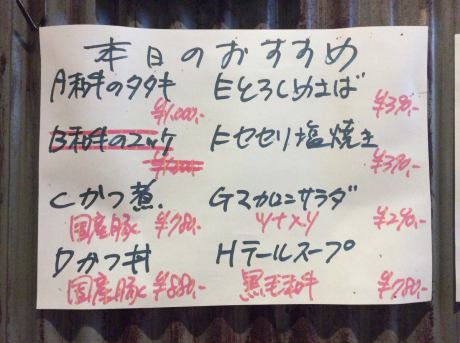 本日のおすすめ
A和牛のタタキ
¥1,000.-
B和牛のユッケ
¥1,200.-
Cかつ煮
国産豚 ¥780.-
Dかつ丼
国産豚 ¥880.-
Eとろしめさば
¥390.-
Fセセリ塩焼き
¥390.-
Gマカロニサラダ
¥290.-
Hテールスープ
黒毛和牛 ¥780.-